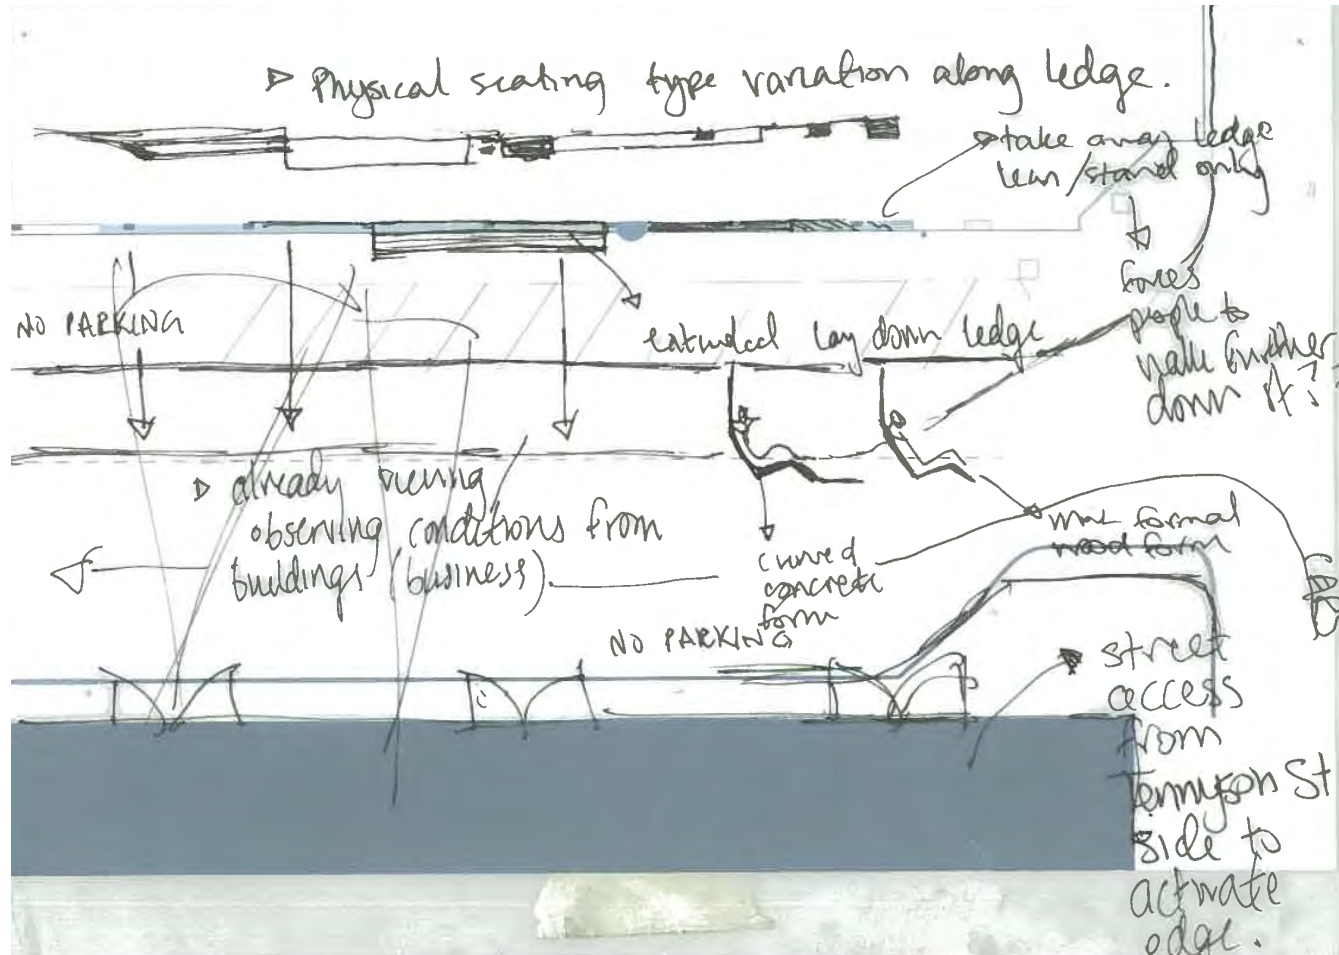 Physical seating type variation along ledge.
take away ledge
lean/stand only
forces
people to
walk further
down it?
NO PARKING
extended lay down ledge
already viewing
observing conditions from
buildings (business).
curved
concrete
form
more formal
wood form
NO PARKING
street
access
from
Tennyson St
side to
activate
edge.